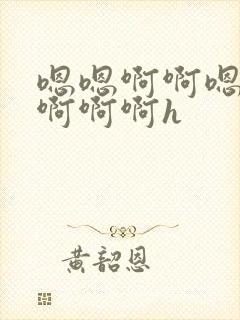 嗯嗯啊啊嗯
啊啊啊h
黄韶恩